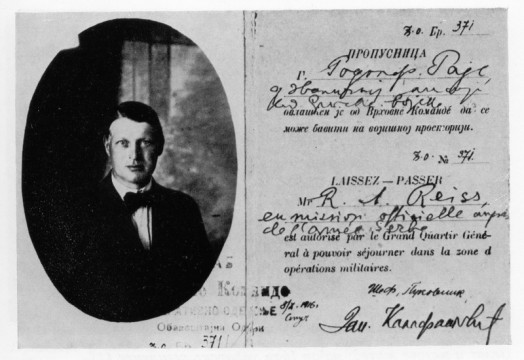 З.О. Бр. 371
ПРОПУСНИЦА
Г. Родолф Рајс,
у званичној
код Српске војске
овлашћен је од Врховне Команде да се
може бавити на војишној просторији.
З.О. № 371.
LAISSEZ—PASSER
Mr R. A. Reiss,
en mission officielle auprès
de l'armée Serbe
est autorisé par le Grand Quartir Géné-
ral à pouvoir séjourner dans la zone d
opérations militaires.
Шеф, Пуковник
Дан. Калафатовић
Обавештајни Одсек
Бр. 371